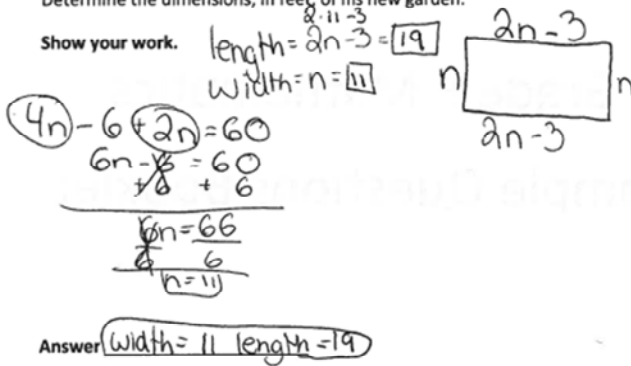 Determine the dimensions, in feet, of his new garden.
2·11-3
Show your work.
length = 2n-3 = 19
width = n = 11
2n-3
n
n
2n-3
4n - 6 + 2n = 60
6n - 6 = 60
+6 +6
6n = 66
6 6
n = 11
Answer width = 11 length = 19